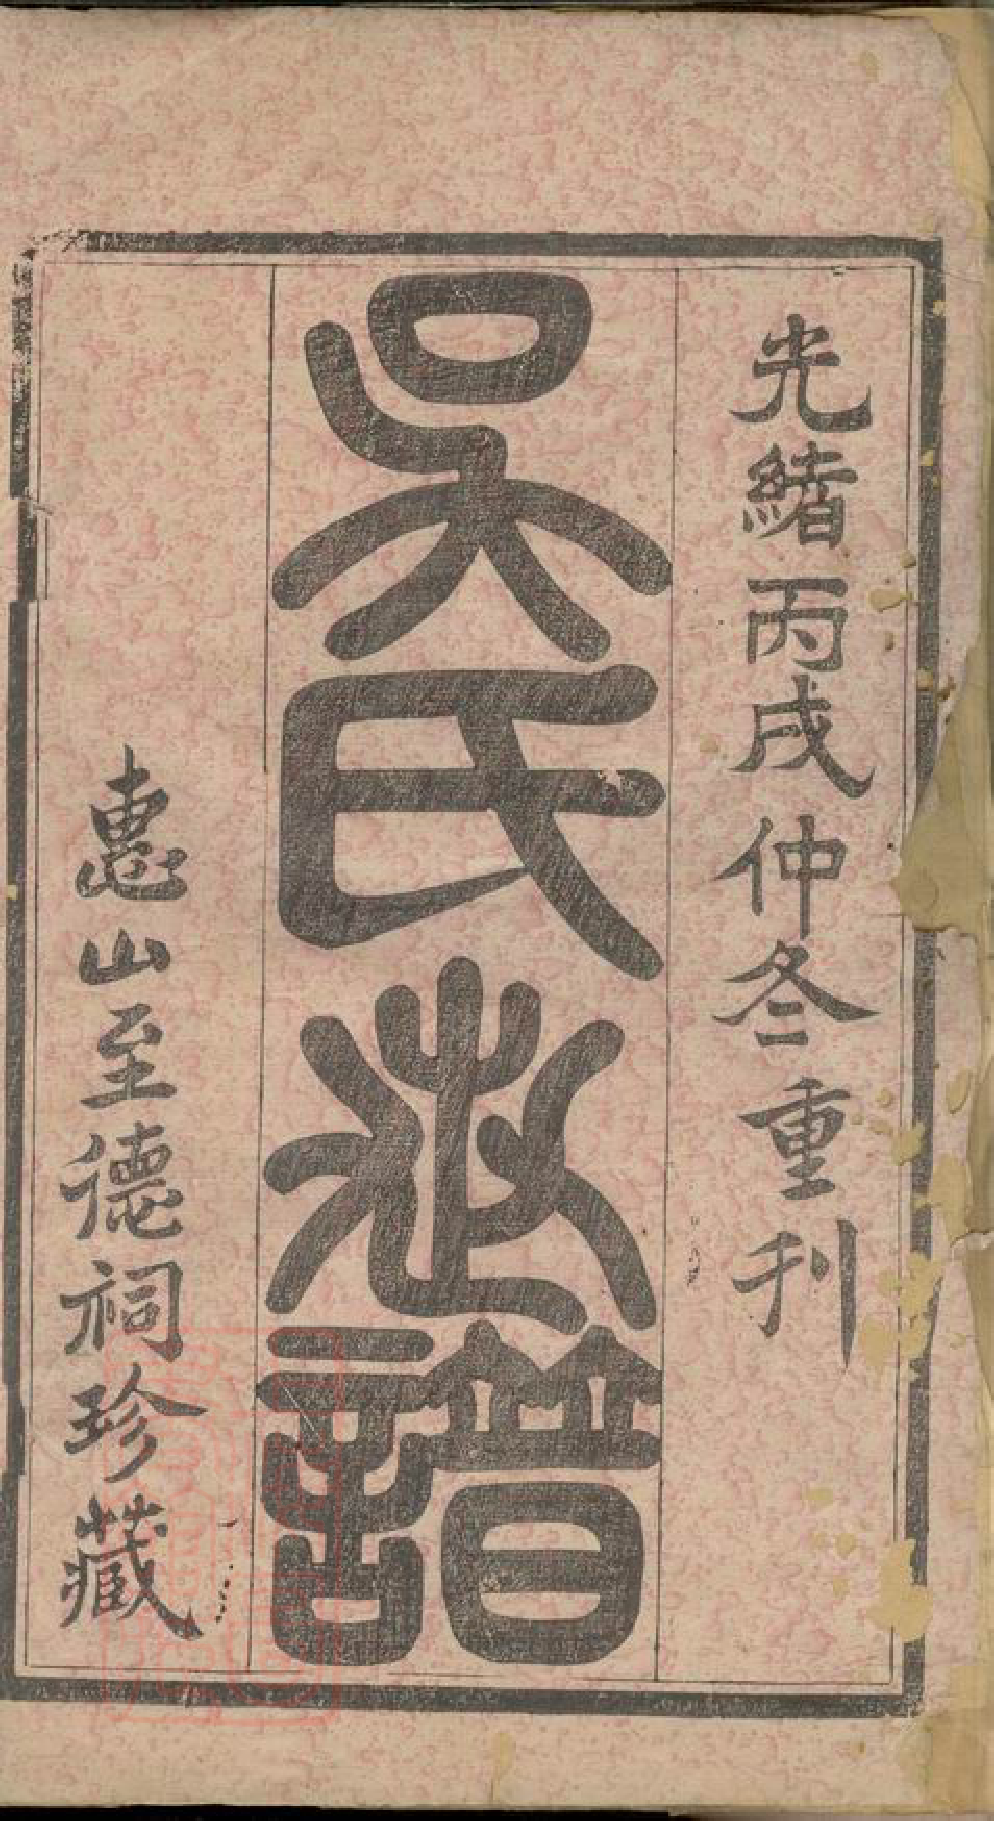 光緒丙戌仲冬重刊
吳氏世譜
惠山至德祠珍藏